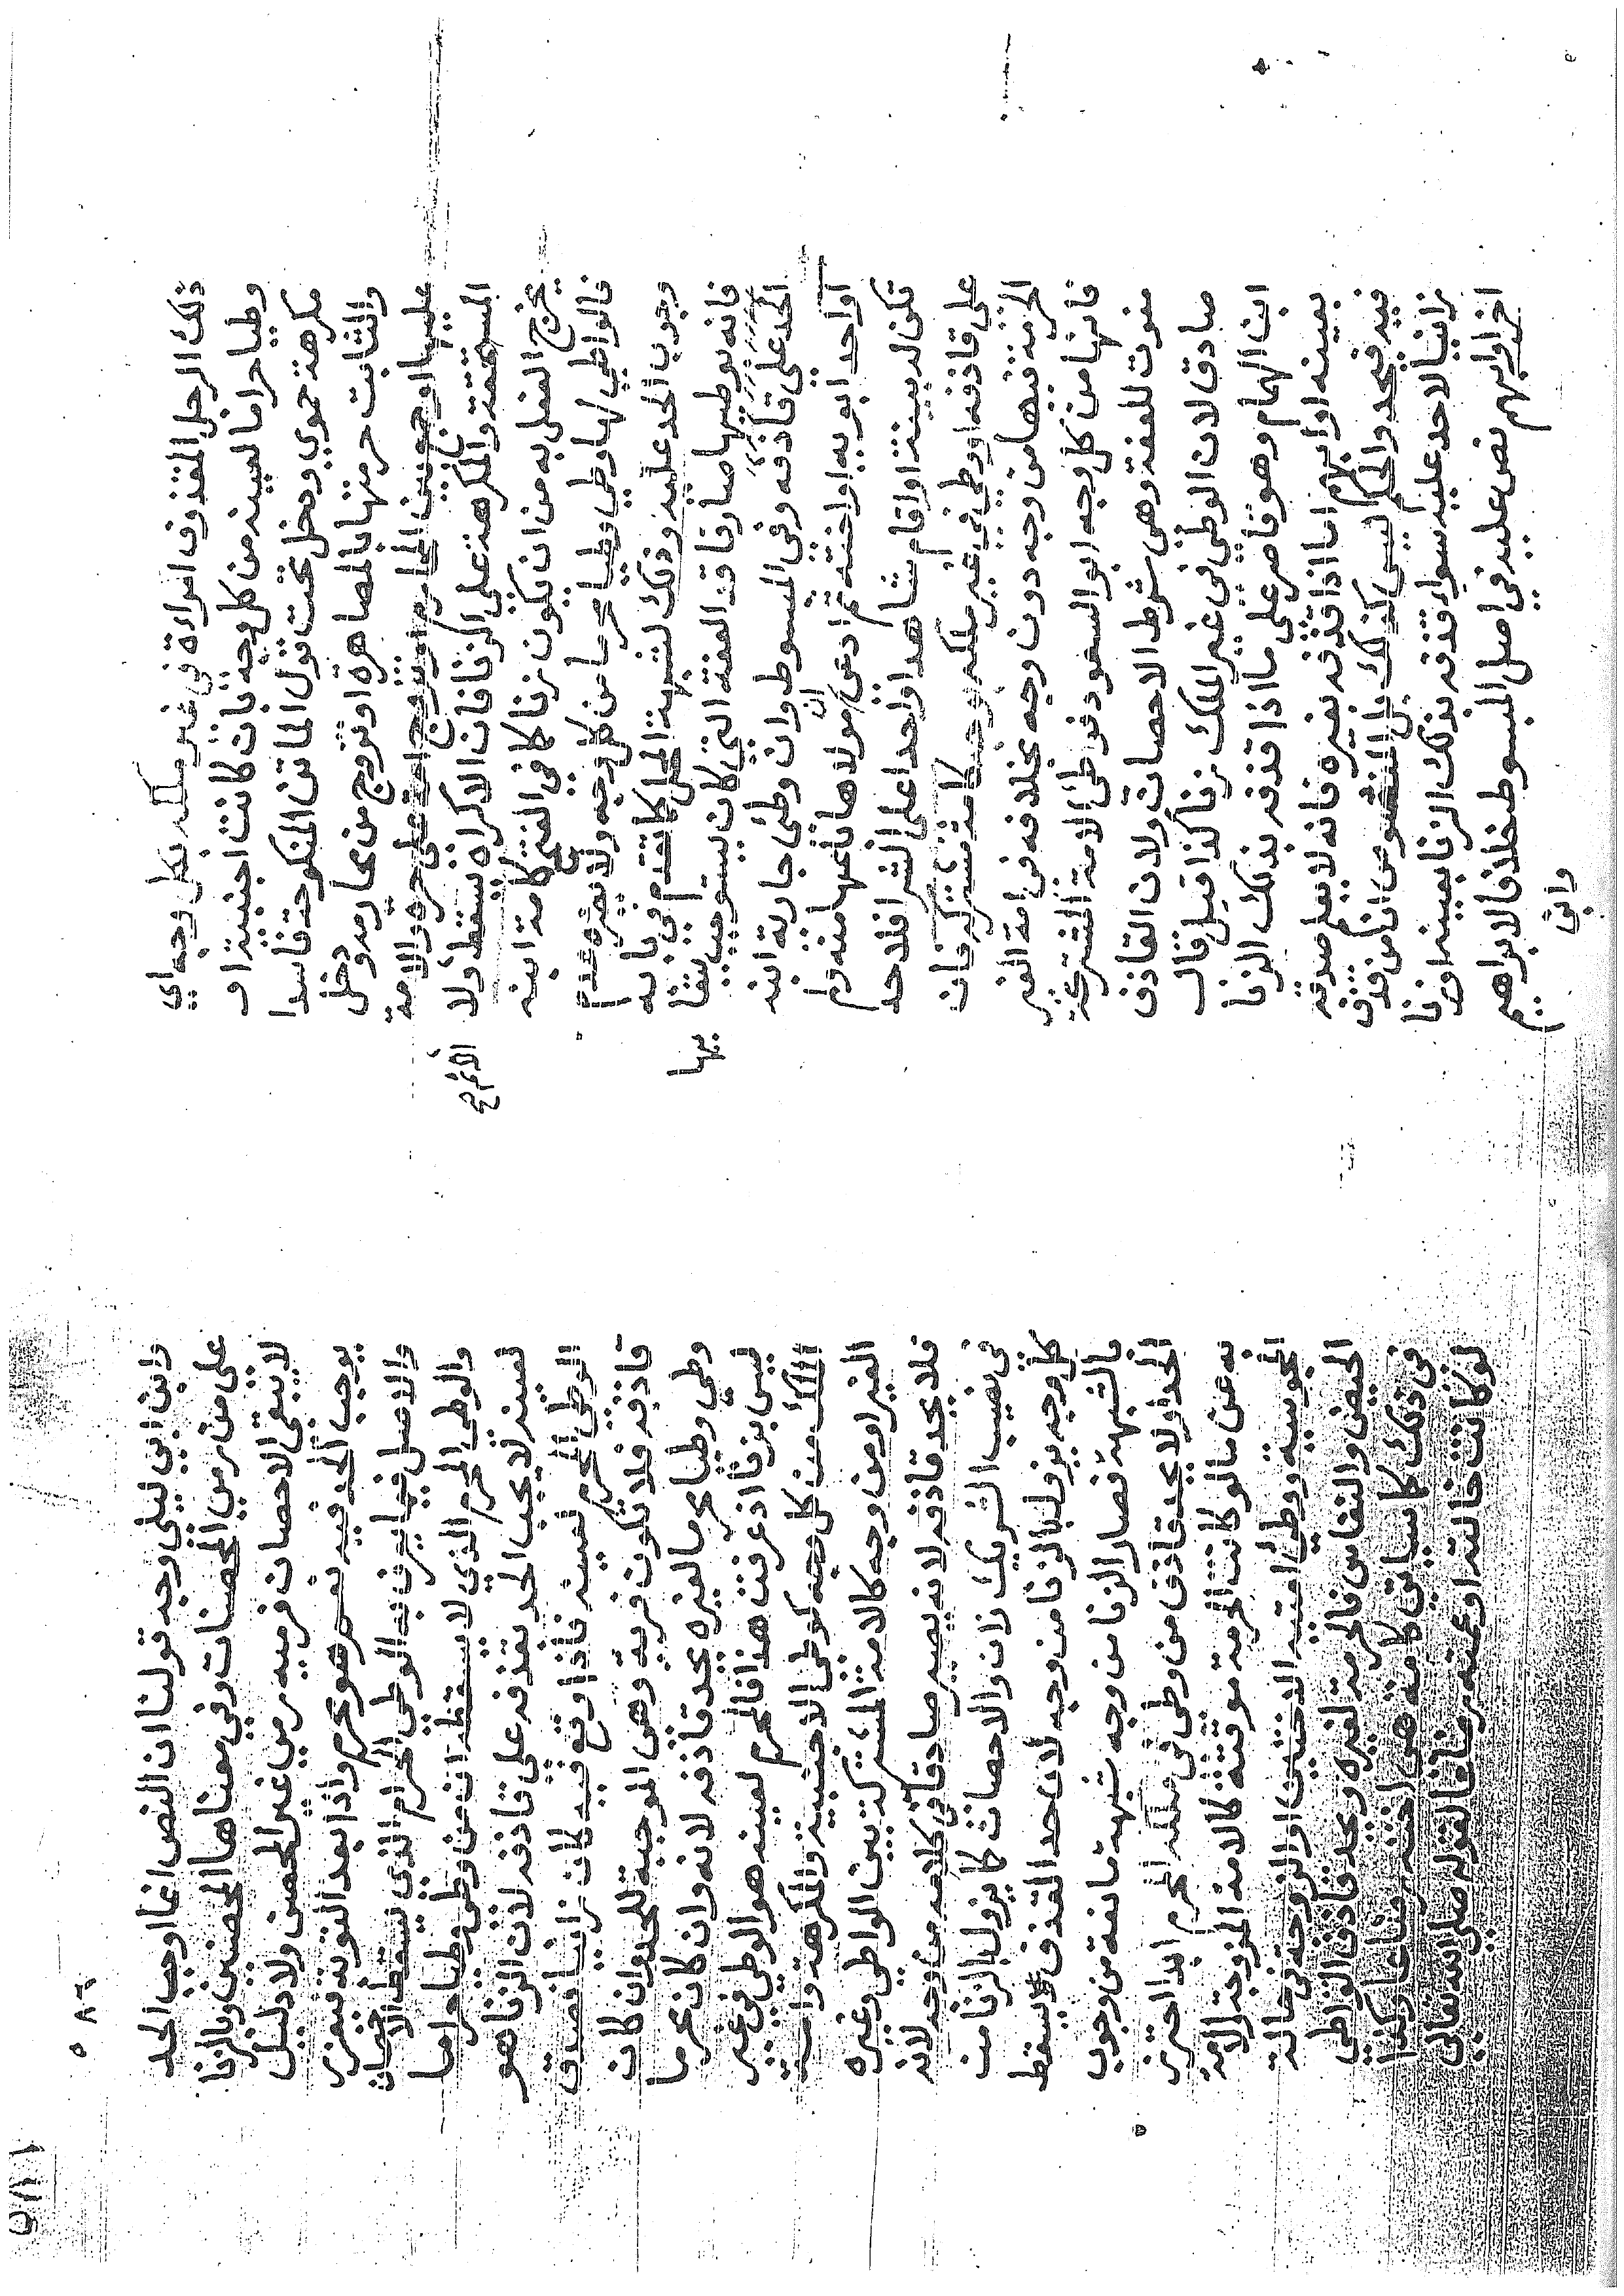 ذلك الرجل المقذوف امراة في غير ملكه بكل وجه اي
وطيا حراما لعينه من كل وجه بان كانت اجنبية او
مكرهة حموي ودخل تحت قول الماتن المنكوحة فاسدا
والثابت حرمتها بالمصاهرة او تزوج من محارمه ودخل
عليها او جمع بين المحارم او تزوج امة على حرة والامة
المستحقة والمكرهة على الزنا فان الاكراه يسقط الاثم ولا
يخرج الفعل به من ان يكون زنا كما في الفتح كامة ابنه
فالواطي لها وطي وطيا محرما من كل وجه ولا يضره عدم
وجوب الحد عليه وذلك لشبهة المحل كما تقدم في بابه
فانه بوطيها صار فاقد العفة التي كان يستوجب بقابها
الحد على قاذفه وفي المبسوط وان وطئ جارية ابنه
او احد ابويه او اخته ثم ادعى ان مولاها باعها منه ولم
تكن له بينة او اقام شاهدا واحدا على الشرا فلا حد
على قاذفه او وطي في غير ملكه بوجه كامة مشتركة فان
الحرمة فيها من وجه دون وجه بخلافه في امة الغير
فانها من كل وجه ابو السعود فوطئ الامة المشتركة
مفوت للعفة وهي شرط الاحصان ولان القاذف
صادق لان الوطئ في غير الملك زنا كذا قيل قال
ابن الهمام وهو قاصر على ما اذا قذفه بذلك الزنا
بعينه او ابهم اما اذا قذفه بغيره فانه لا يعلم صدقه
فيه فيحد والحكم ليس كذلك بل المنصوص ان من قذف
زانيا لا حد عليه سواء قذفه بذلك الزنا بعينه او زنا
اخر او ابهم نص عليه في اصل المبسوط خلافا لابراهيم
وابن
وابن ابي ليلى وجه قولنا ان النص انما اوجب الحد
على من رمي المحصنات وفي معناها المحصنين وبالزنا
لا يبقى الاحصان فرميه رمي غير المحصن ولا دليل
يوجب الحد فيه نعم هو محرم واذا بعد التوبة فيعزر
والاصل فيما يعرف به الوطي الحرام الذي يسقط الاحصان
والوطي المحرم الذي لا يسقط ان من وطي وطيا حراما
لعينه لا يجب الحد بقذفه على قاذفه لان الزنا هو
الوطي المحرم لعينه فاذا وقع فيه كان زانيا فصدق
قاذفه فلا تكون فرية وهي الموجبة للحد وان كان
وطي وطيا محرما لغيره يحد قاذفه لانه وان كان محرما
ليس بزنا اذ عرفت هذا فالمحرم لعينه هو الوطي في غير
الملك من كل وجه كوطي الاجنبية والمكرهة وامة
الغير او من وجه كالامة المشتركة بين الواطي وغيره
فلا يحد قاذفه لانه يصير صادقا في كلامه من وجه لانه
في نصيب الشريك زان والاحصان كما يزول بالزنا من
كل وجه يزول بالزنا من وجه لان حد القذف يسقط
بالشبهة فصار الزنا من وجه شبهة مانعة من وجوب
الحد ولا يحد قاذف من وطئ في ملكه المحرم ابدا احترز
به عن ما لو كانت الحرمة موقتة كالامة المزوجة والامة
المجوسية ووطي امتيه الاختين او الزوجة في حالة
الحيض والنفاس فالحرمة لغيره ويحد قاذف الواطي
في ذلك كما سياتي كامة هي اخته رضاعا وكذا
لو كانت خالته او عمته رضاعا لقوله صلى الله تعالى